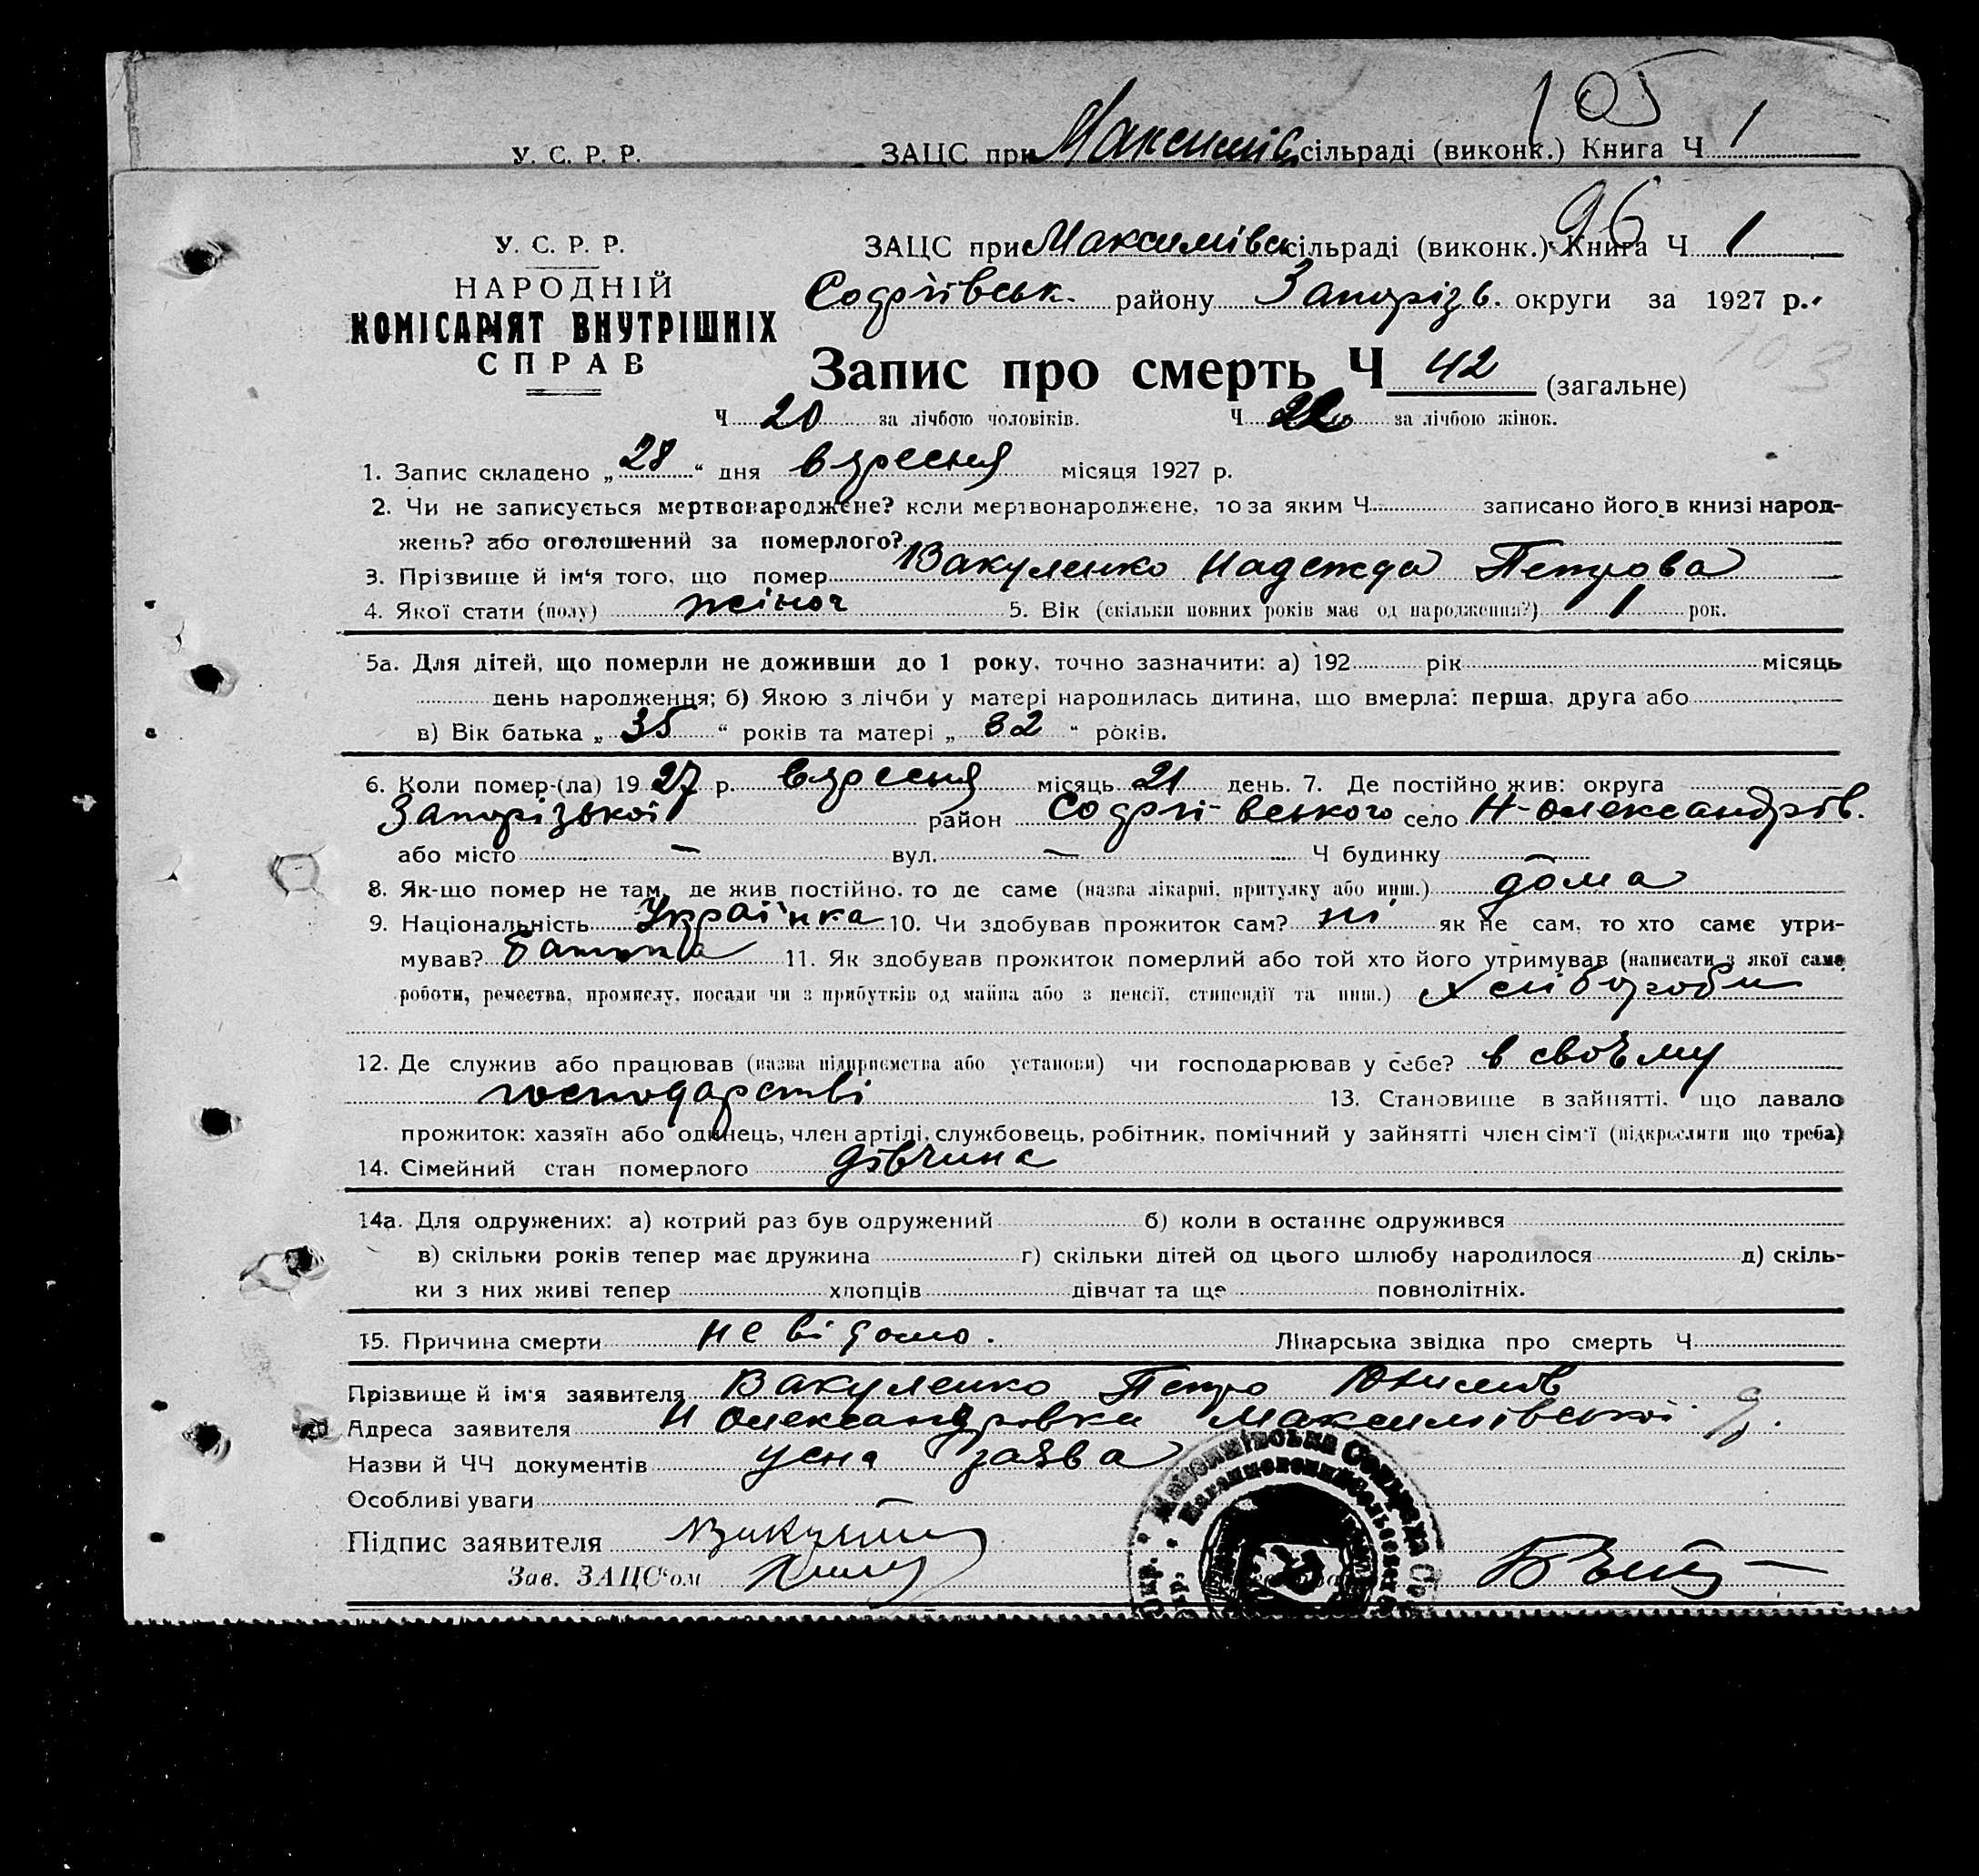 105
У. С. Р. Р. ЗАЦС при Максимівс сільраді (виконк.) Книга Ч 1
96
У. С. Р. Р. ЗАЦС при Максимівск сільраді (виконк.) Книга Ч 1
НАРОДНІЙ
КОМІСАРІЯТ ВНУТРІШНІХ
СПРАВ
Софіївськ. району Запорізь. округи за 1927 р.
103
Запис про смерть Ч 42 (загальне)
Ч 20 за лічбою чоловіків. Ч 22 за лічбою жінок.
1. Запис складено „28“ дня вересня місяця 1927 р.
2. Чи не записується мертвонароджене? коли мертвонароджене, то за яким Ч записано його в книзі народ-
жень? або оголошений за померлого?
3. Прізвище й ім‘я того, що помер Вакуленко Надежда Петрова
4. Якої стати (полу) жіноч 5. Вік (скільки повних років має од народження?) 1 рок.
5а. Для дітей, що померли не доживши до 1 року, точно зазначити: а) 192 рік місяць
день народження; б) Якою з лічби у матері народилась дитина, що вмерла: перша, друга або
в) Вік батька „35“ років та матері „32“ років.
6. Коли помер-(ла) 1927 р. вересня місяць 21 день. 7. Де постійно жив: округа
Запорізької район Софіївського село Н-Олександрів.
або місто — вул. — Ч будинку —
8. Як-що помер не там, де жив постійно, то де саме (назва лікарні, притулку або инш.) дома
9. Національність Українка 10. Чи здобував прожиток сам? ні як не сам, то хто саме утри-
мував? батька 11. Як здобував прожиток померлий або той хто його утримував (написати з якої саме
роботи, ремества, промислу, посади чи з прибутків од майна або з пенсії, стипендії та инш.) Хліборобы
12. Де служив або працював (назва підприємства або установи) чи господарював у себе? в своєму
господарстві 13. Становище в зайнятті, що давало
прожиток: хазяїн або одинець, член артілі, службовець, робітник, помічний у зайнятті член сім‘ї (підкреслити що треба)
14. Сімейний стан померлого дівчина
14а. Для одружених: а) котрий раз був одружений б) коли в останнє одружився
в) скільки років тепер має дружина г) скільки дітей од цього шлюбу народилося д) скіль-
ки з них живі тепер хлопців дівчат та ще повнолітніх.
15. Причина смерти не відомо. Лікарська звідка про смерть Ч
Прізвище й ім‘я заявителя Вакуленко Петро
Адреса заявителя Н Олександровка Максимівської
Назви й ЧЧ документів усна заява
Особливі уваги
Підпис заявителя
Зав. ЗАЦС‘ом